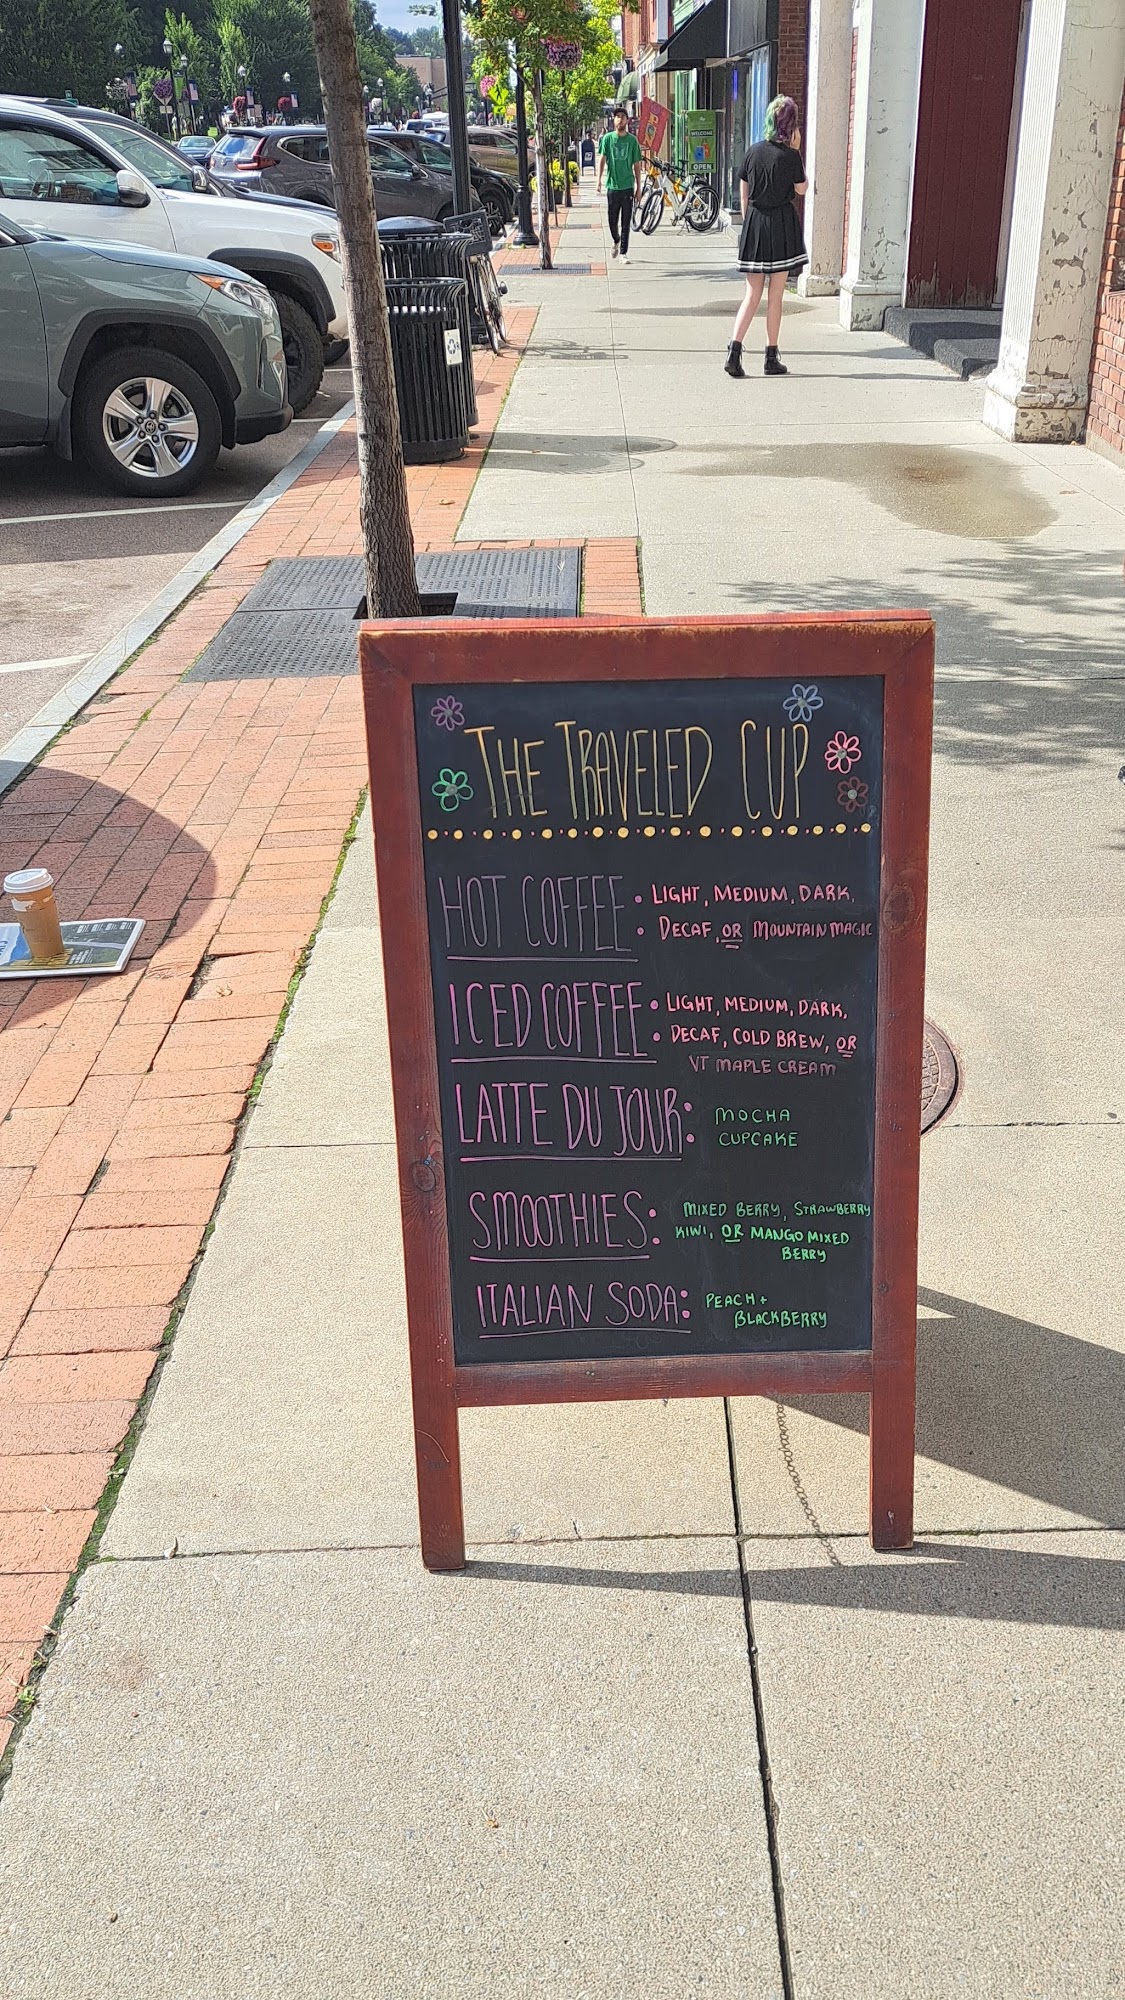 WELCOME
OPEN
THE TRAVELED CUP
HOT COFFEE: LIGHT, MEDIUM, DARK,
DECAF, OR MOUNTAIN MAGIC
ICED COFFEE: LIGHT, MEDIUM, DARK,
DECAF, COLD BREW, OR
VT MAPLE CREAM
LATTE DU JOUR: MOCHA
CUPCAKE
SMOOTHIES: MIXED BERRY, STRAWBERRY
KIWI, OR MANGO MIXED
BERRY
ITALIAN SODA: PEACH +
BLACKBERRY